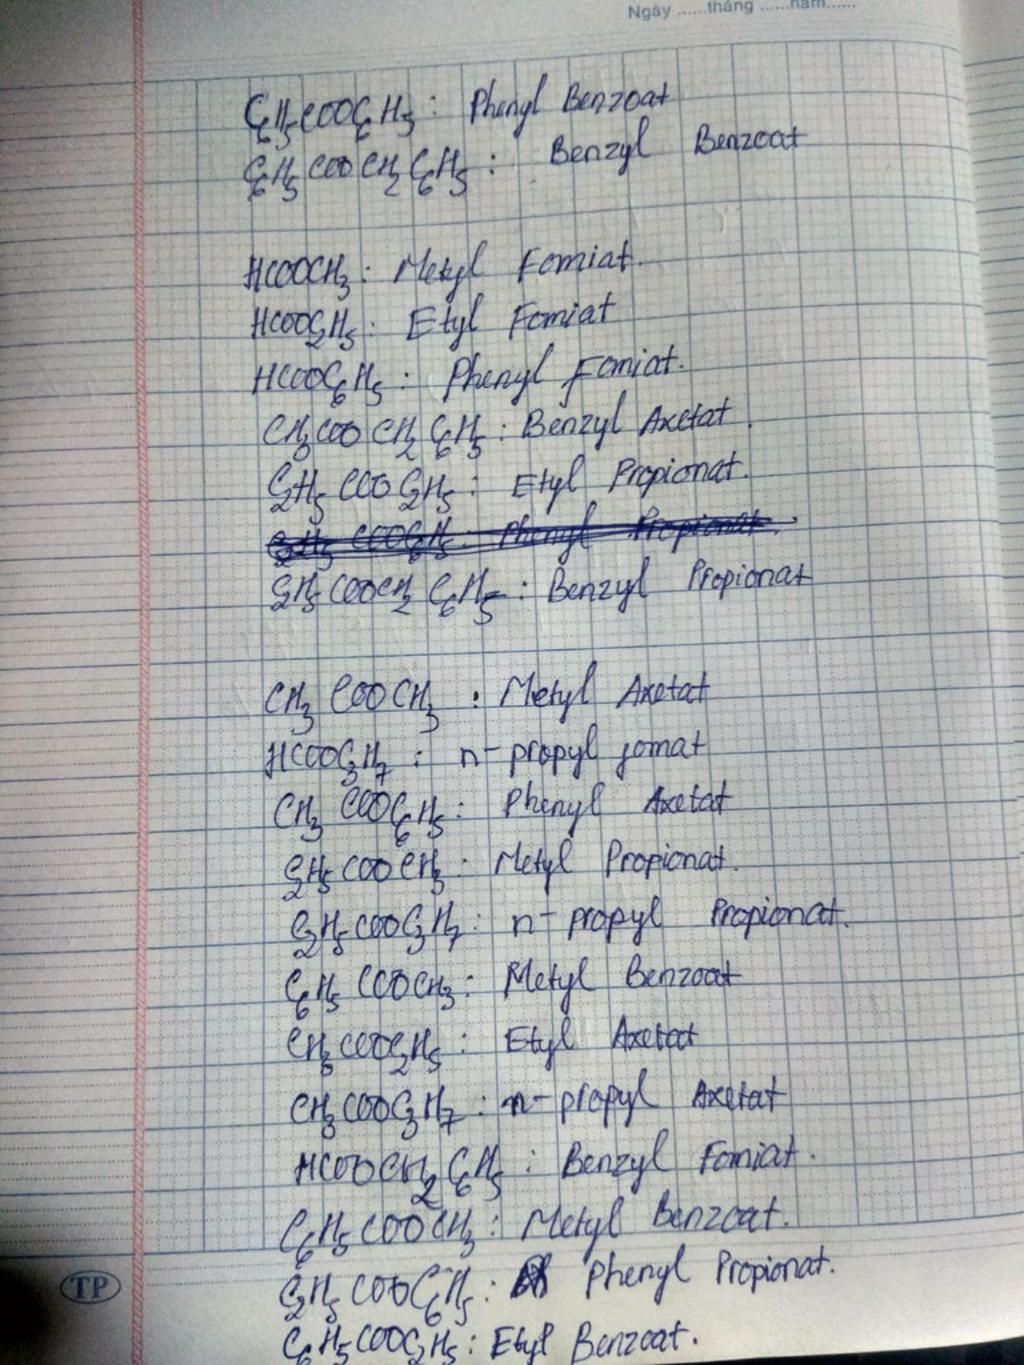 Ngày ......tháng ......năm......
C₆H₅COOC₆H₅ : Phenyl Benzoat
C₆H₅COOCH₂C₆H₅ : Benzyl Benzoat
HCOOCH₃ : Metyl Fomiat.
HCOOC₂H₅ : Etyl Fomiat
HCOOC₆H₅ : Phenyl fomiat.
CH₃COOCH₂C₆H₅ : Benzyl Axetat.
C₂H₅COOC₂H₅ : Etyl Propionat.
C₂H₅COOC₆H₅ : Phenyl Propionat.
C₂H₅COOCH₂C₆H₅ : Benzyl Propionat
CH₃COOCH₃ : Metyl Axetat
HCOOC₃H₇ : n-propyl fomat
CH₃COOC₆H₅ : Phenyl Axetat
C₂H₅COOCH₃ : Metyl Propionat.
C₂H₅COOC₃H₇ : n-propyl Propionat.
C₆H₅COOCH₃ : Metyl Benzoat
CH₃COOC₂H₅ : Etyl Axetat
CH₃COOC₃H₇ : n-propyl Axetat
HCOOCH₂C₆H₅ : Benzyl Fomiat.
C₆H₅COOCH₃ : Metyl Benzoat.
C₂H₅COOC₆H₅ : Phenyl Propionat.
C₆H₅COOC₂H₅ : Etyl Benzoat.
TP